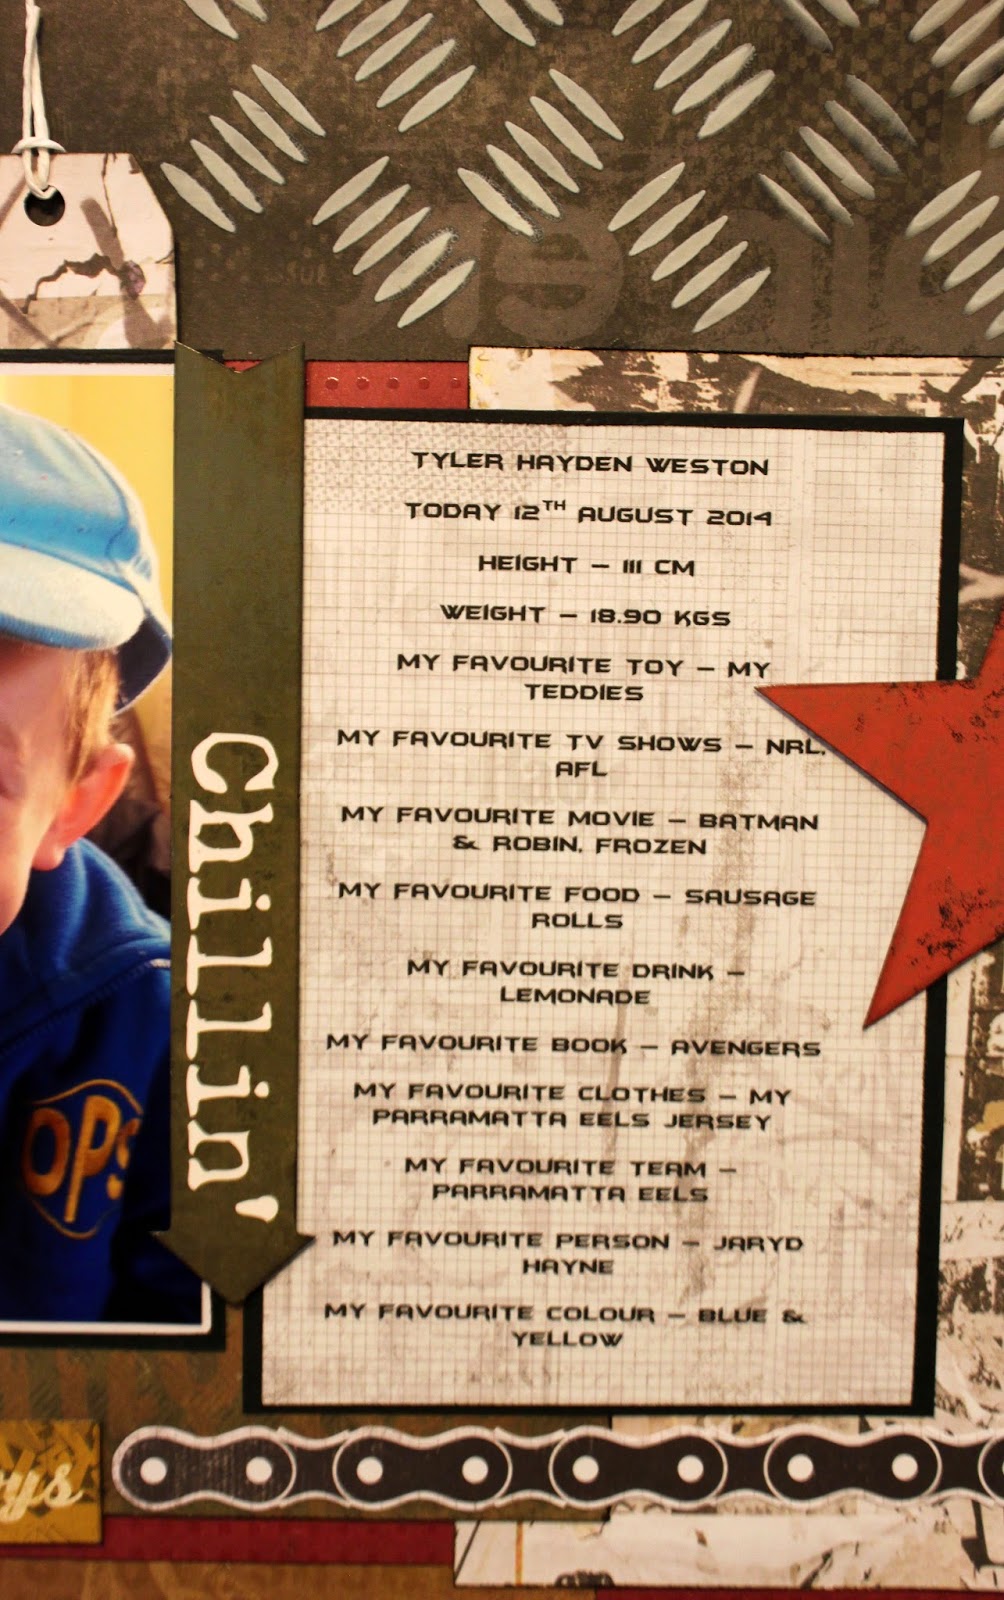 TYLER HAYDEN WESTON
TODAY 12TH AUGUST 2014
HEIGHT – 111 CM
WEIGHT – 18.90 KGS
MY FAVOURITE TOY – MY
TEDDIES
MY FAVOURITE TV SHOWS – NRL,
AFL
MY FAVOURITE MOVIE – BATMAN
& ROBIN, FROZEN
MY FAVOURITE FOOD – SAUSAGE
ROLLS
MY FAVOURITE DRINK –
LEMONADE
MY FAVOURITE BOOK – AVENGERS
MY FAVOURITE CLOTHES – MY
PARRAMATTA EELS JERSEY
MY FAVOURITE TEAM –
PARRAMATTA EELS
MY FAVOURITE PERSON – JARYD
HAYNE
MY FAVOURITE COLOUR – BLUE &
YELLOW
Chillin'
OPS